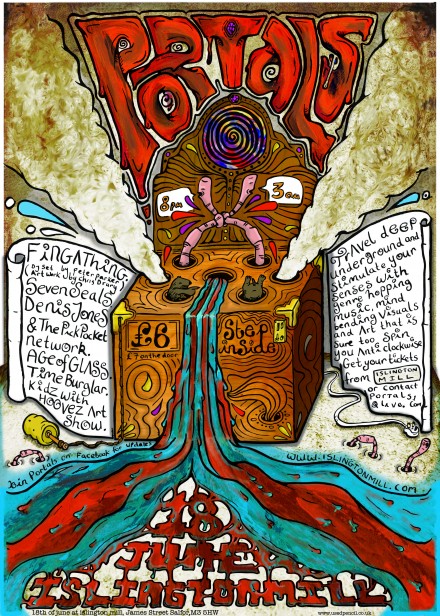 PORTALS
8pm
3am
FINGATHING.
(DJ set by Peter Parker
(Art work by Chris Drury
Seven Seals
Denis Jones
& The PickPocket
network.
AGE of GLASS.
Time Burglar.
kidz with
HOOVEZ Art
Show.
£6
£7 on the door
Step
inside
Travel deep
underground and
Stimulate your
Senses with
genre hopping
music, mind
bending visuals
and Art that is
Sure too Spin
you Anti clockwise
Get your tickets
from ISLINGTON
MILL
or contact
Portals,
Join Portals on Facebook for updates
www.islingtonmill.com
18
JUNE
ISLINGTON MILL
18th of june at islington mill, James Street Salfor,M3 5HW
www.usedpencil.co.uk